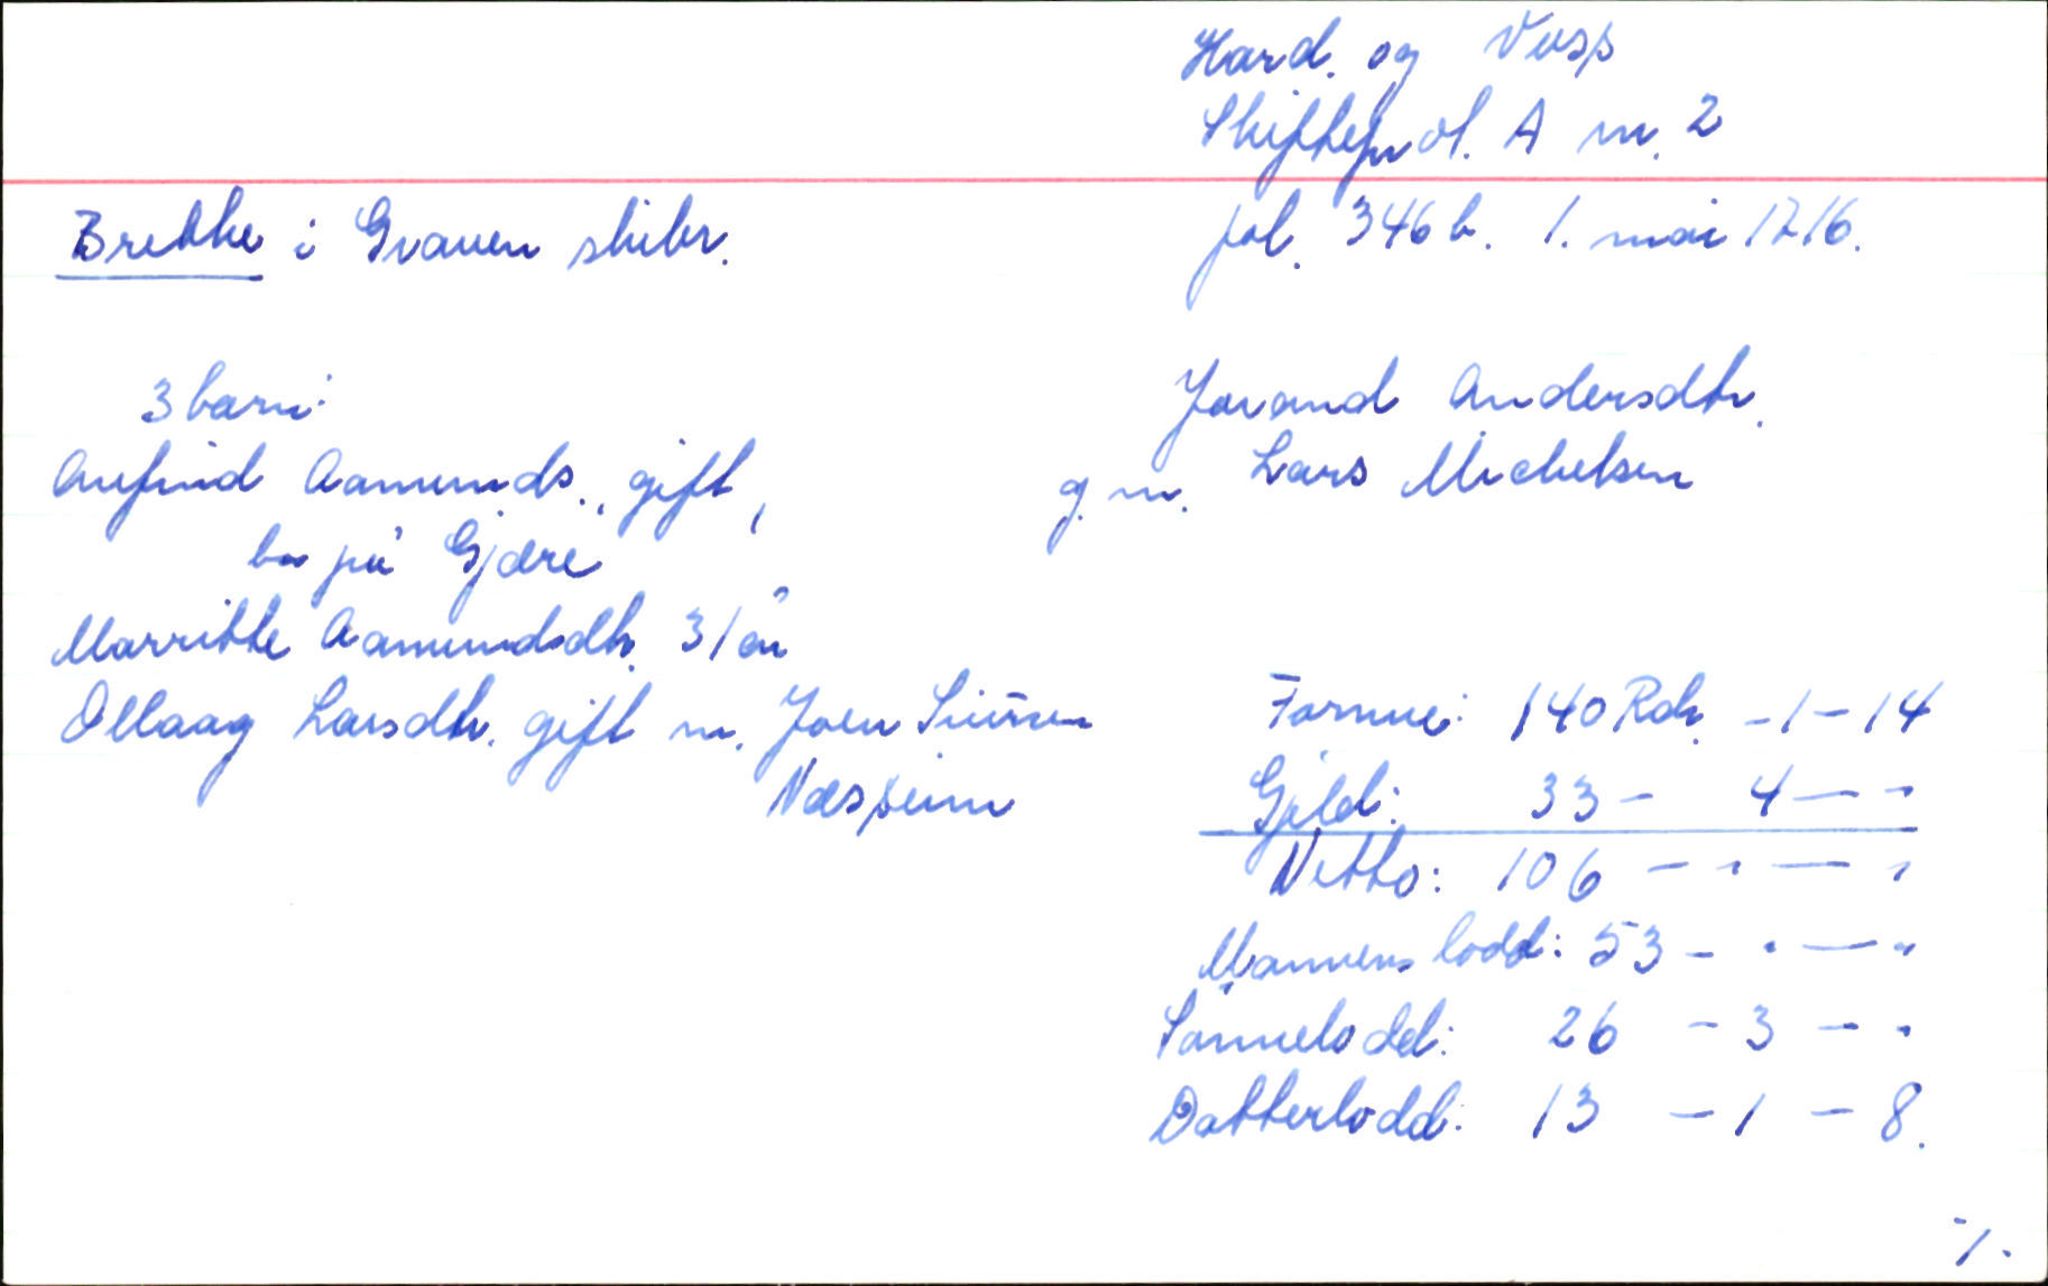 Hard. og Voss
Skifteprot. A nr. 2
fol. 346 b. 1. mai 1716.
Brekke i Graven skibr.
3 barn:
Anfind Aamunds., gift,
bor på Gjære
Marritte Aamundsdtr. 31 år
Ollaag Larsdtr. gift m. Joen Siursen
Næsheim
Jorand Andersdtr.
g. m. Lars Michelsen
Formue: 140 Rdr. - 1 - 14
Gjeld: 33 - 4 - "
Netto: 106 - " - "
Mannens lodd: 53 - " - "
Sønnelodd: 26 - 3 - "
Datterlodd: 13 - 1 - 8.
./.